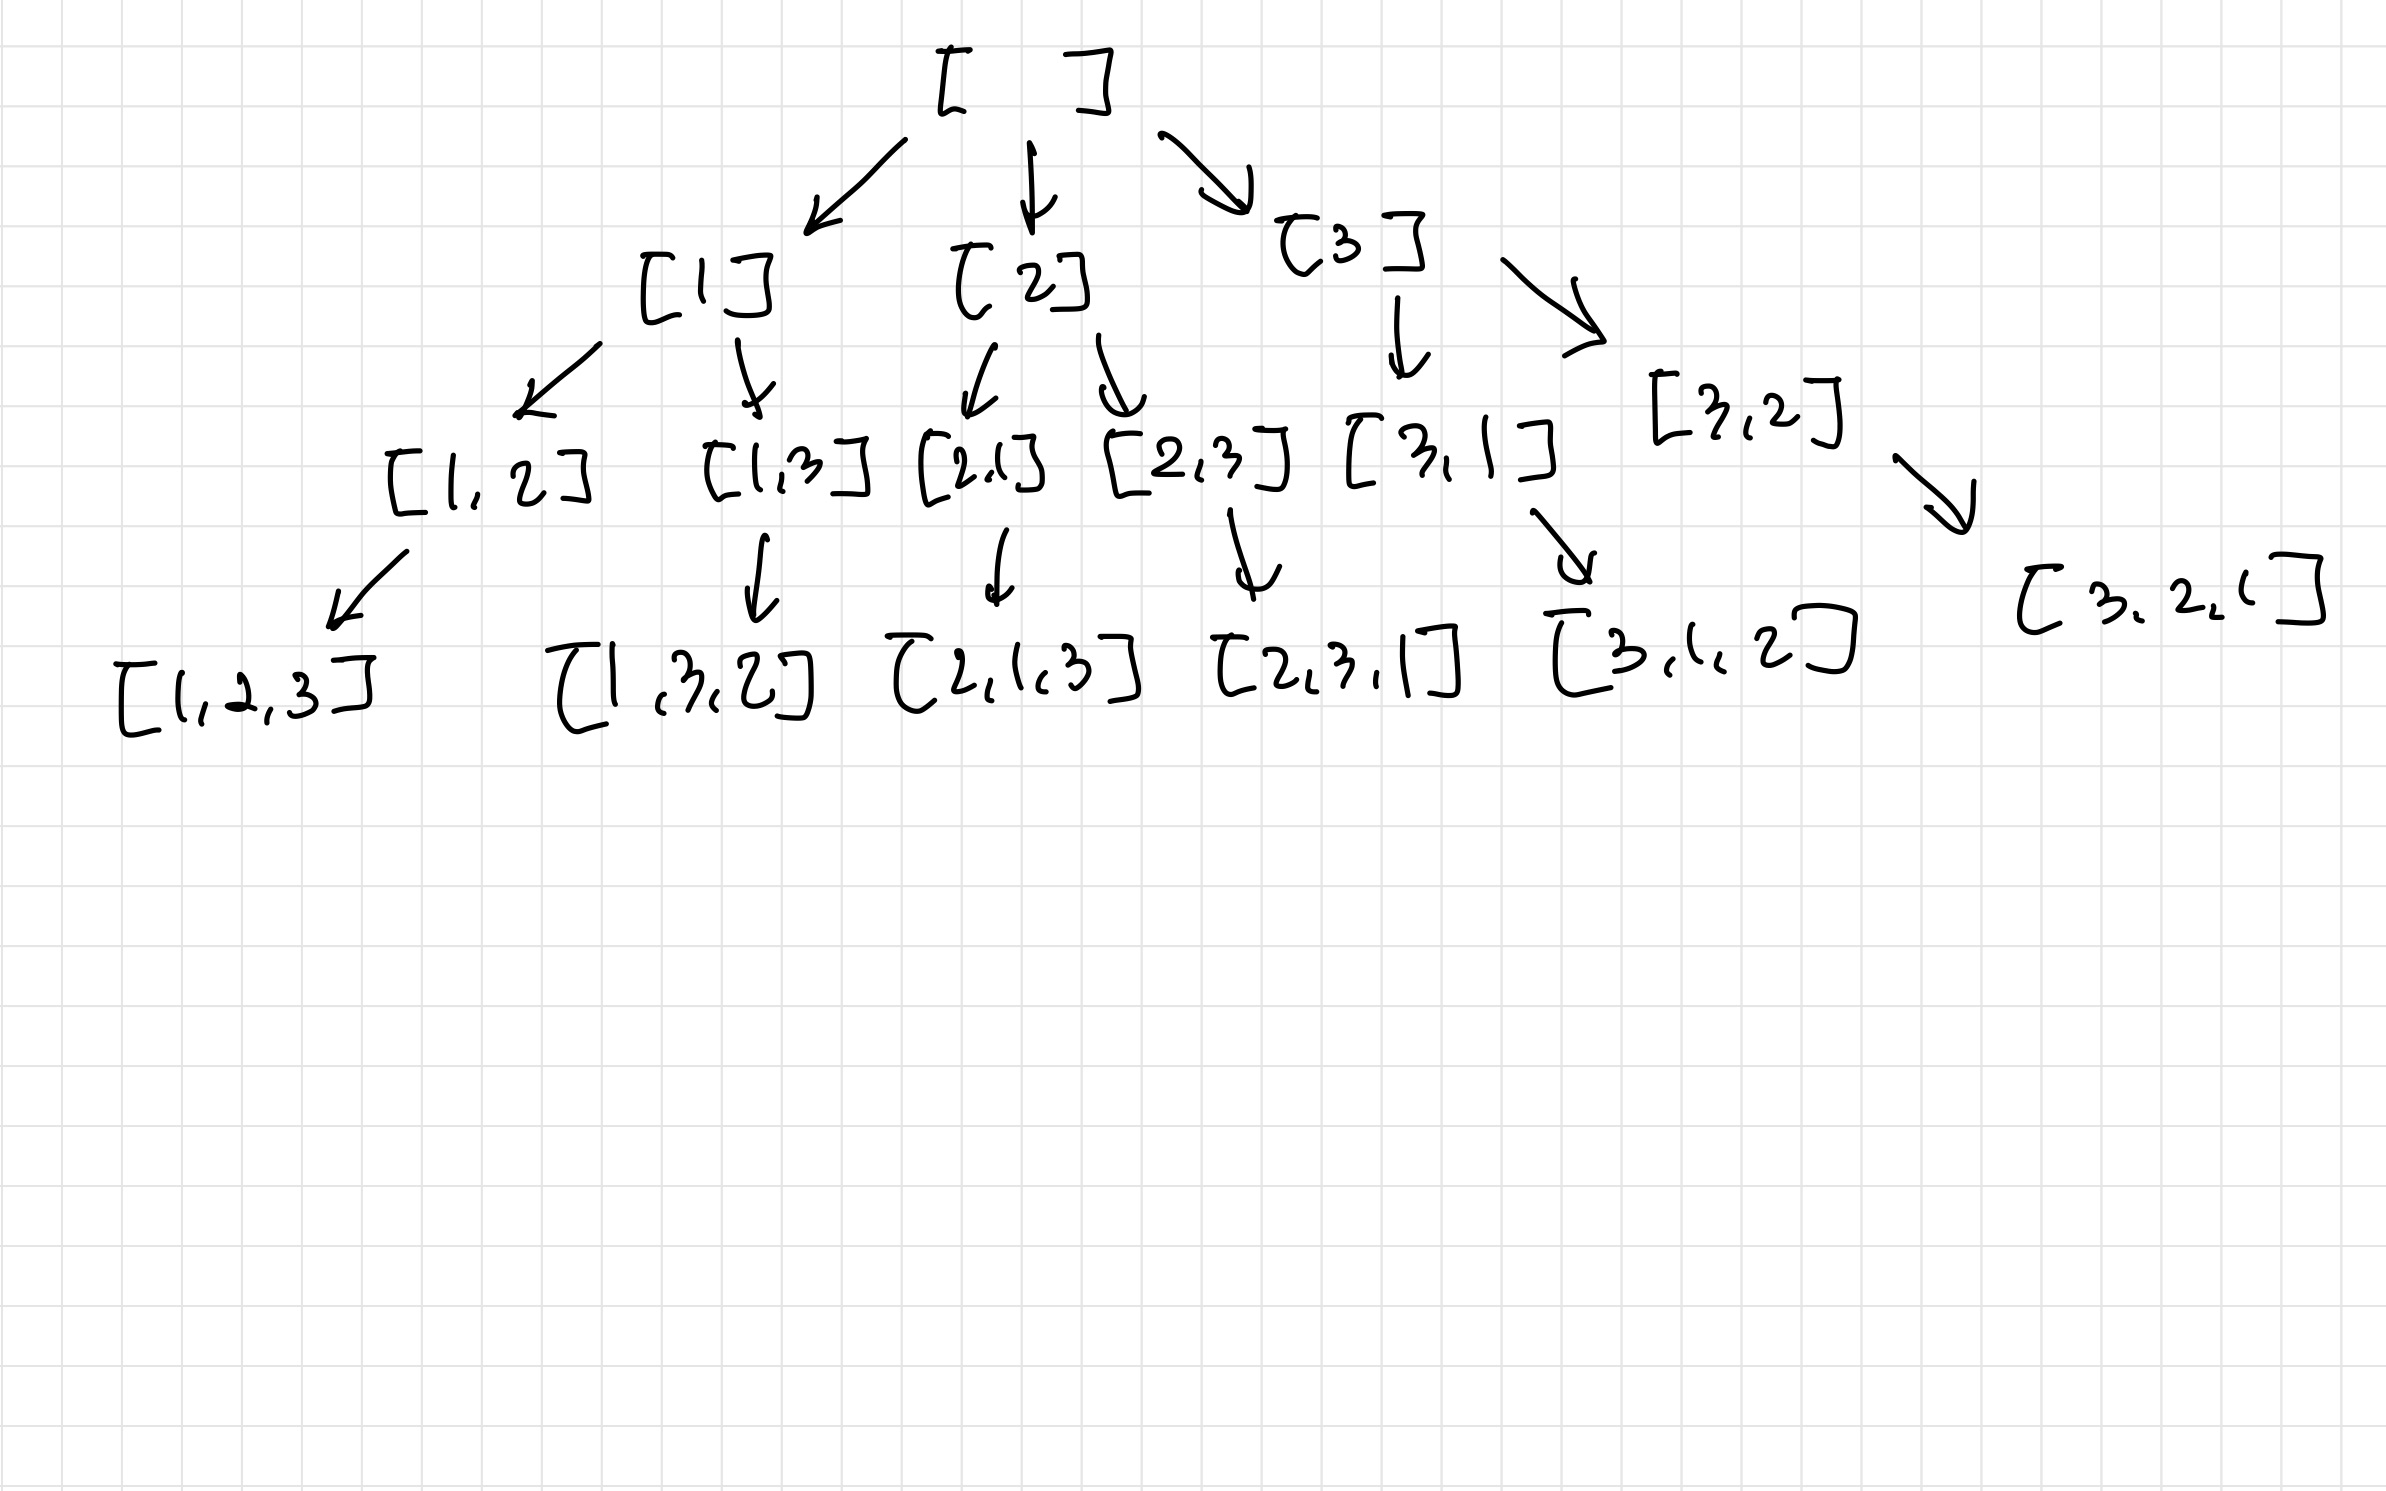 [ ]
[1] [2] [3]
[1,2] [1,3] [2,1] [2,3] [3,1] [3,2]
[1,2,3] [1,3,2] [2,1,3] [2,3,1] [3,1,2] [3,2,1]